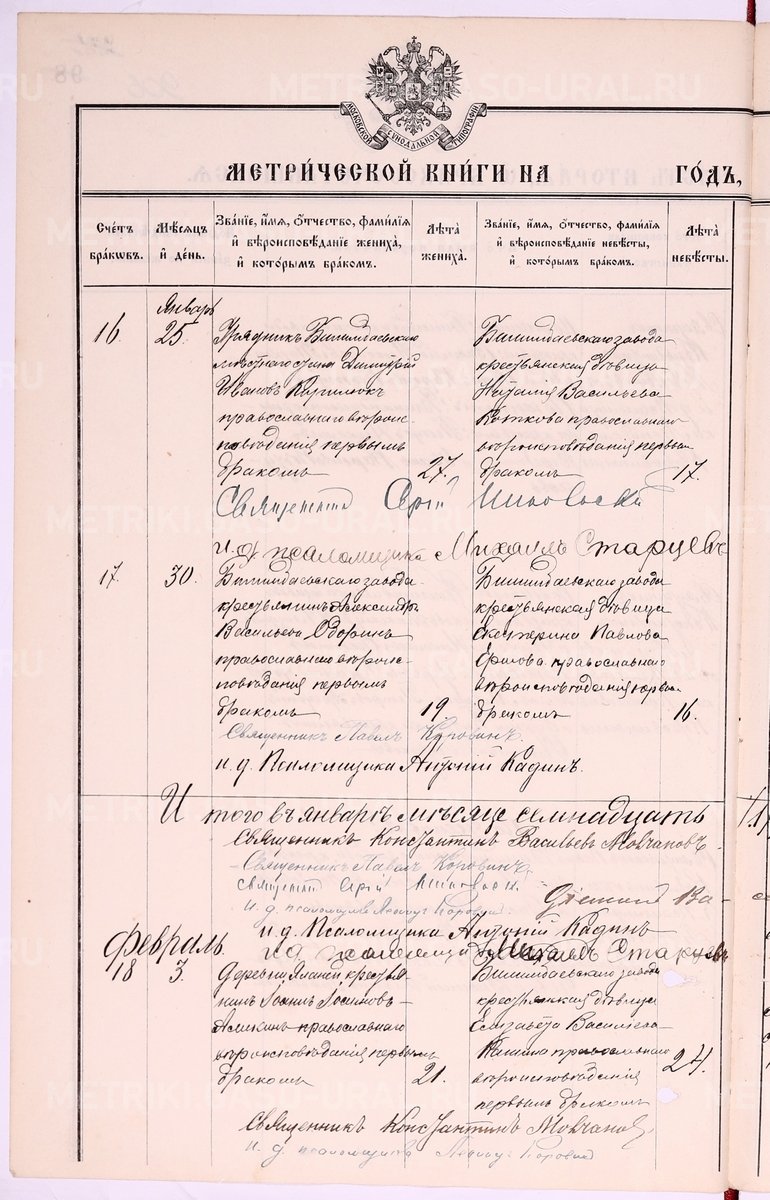 МОСКОВСКОЙ СѴНОДАЛЬНОЙ ТИПОГРАФІИ
МЕТРИ́ЧЕСКОЙ КНИ́ГИ НА ГО́ДЪ,
Сче́тъ бра́ковъ.
Мѣ́сяцъ и҆ де́нь.
Зва́нїе, и҆́мя, ѻ҆́тчество, фами́лїя
и҆ вѣроисповѣ́данїе жениха̀,
и҆ кото́рымъ бра́комъ.
Лѣ́та жениха̀.
Зва́нїе, и҆́мя, ѻ҆́тчество, фами́лїя
и҆ вѣроисповѣ́данїе невѣ́сты,
и҆ кото́рымъ бра́комъ.
Лѣ́та невѣ́сты.
Январь
16. 25.
Билимбаевскаго
Димитрій
Ивановъ
православнаго вѣроис-
повѣданія первымъ
бракомъ 27.
Билимбаевскаго завода
крестьянская дѣвица
Наталія Васильева
православнаго
вѣроисповѣданія первым
бракомъ 17.
Священникъ Сергій
и. д. псаломщика Михаилъ Старцевъ
17. 30.
Билимбаевскаго завода
крестьянинъ Александръ
Васильевъ Одоринъ
православнаго вѣроис-
повѣданія первымъ
бракомъ 19.
Билимбаевскаго завода
крестьянская дѣвица
Екатерина Павлова
православнаго
вѣроисповѣданія первы-
бракомъ 16.
Священникъ Павелъ Коровинъ.
и. д. Псаломщика Антоній Кадинъ.
Итого въ январѣ мѣсяцѣ семнадцать
Священникъ Константинъ Васильевъ Мовчановъ.
Священникъ Павелъ Коровинъ
Священникъ Сергій
и. д. псаломщика
и. д. Псаломщика Антоній Кадинъ
и. д. Старцевъ
Февраль
18 3.
Деревни крестья-
нинъ Іоаннъ
православнаго
вѣроисповѣданія первымъ
бракомъ 21.
Билимбаевскаго завода
крестьянская дѣвица
Елизавета Васильева
православнаго
вѣроисповѣданія
первымъ бракомъ 24.
Священникъ Константинъ Мовчановъ
и. д. псаломщика
METRIKI.GASO-URAL.RU